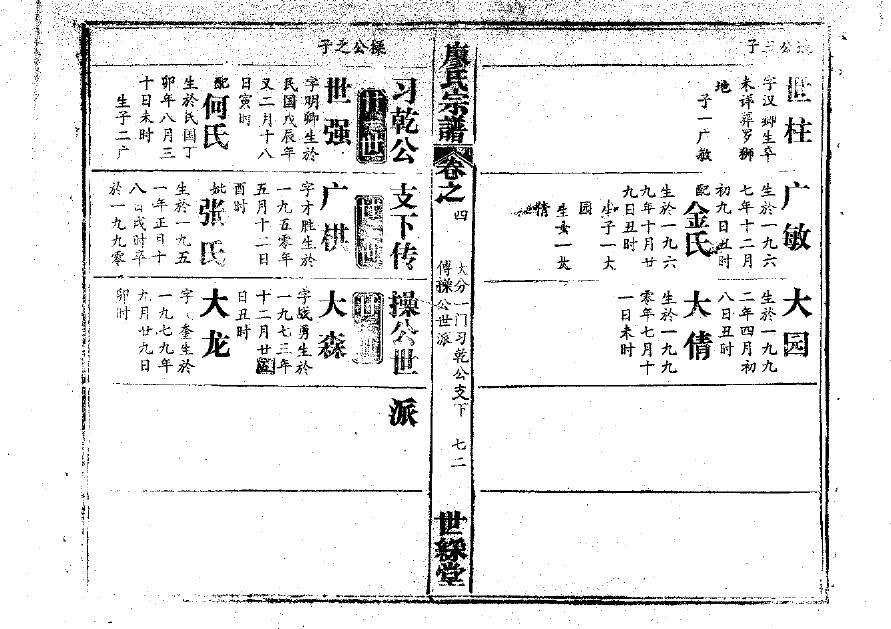 公之子
世柱
字汉卿生卒
未详葬罗狮
地
子一广敏
广敏
生於一九六
七年十二月
初九日丑时
配
金氏
生於一九六
九年十月廿
九日丑时
生子一大
园
生女一大
倩
大园
生於一九九
二年四月初
八日丑时
大倩
生於一九九
零年七月十
一日未时
廖氏宗譜
卷之
四
大分一门习乾公支下
傅操公世派
七二
世綵堂
习乾公
支下传
操公世
派
操公之子
世强
字明卿生於
民国戊辰年
又二月十八
日寅时
配
何氏
生於民国丁
卯年八月三
十日未时
生子二广
广棋
字才胜生於
一九五零年
五月十二日
酉时
妣
张氏
生於一九五
一年正月十
八日戌时卒
於一九九零
大森
字战勇生於
一九七三年
十二月廿
日丑时
大龙
字奎生於
一九七九年
九月廿九日
卯时